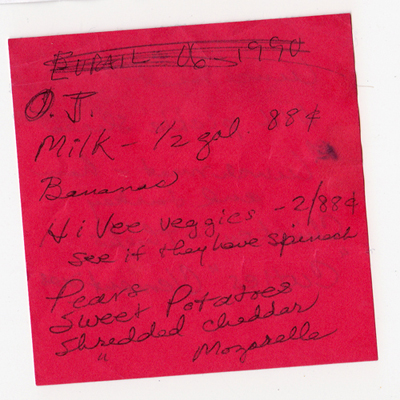 O.J.
Milk - 1/2 gal 88¢
Bananas
Hi Vee veggies - 2/88¢
see if they have spinach
Pears
Sweet Potatoes
Shredded cheddar
" Mozarella